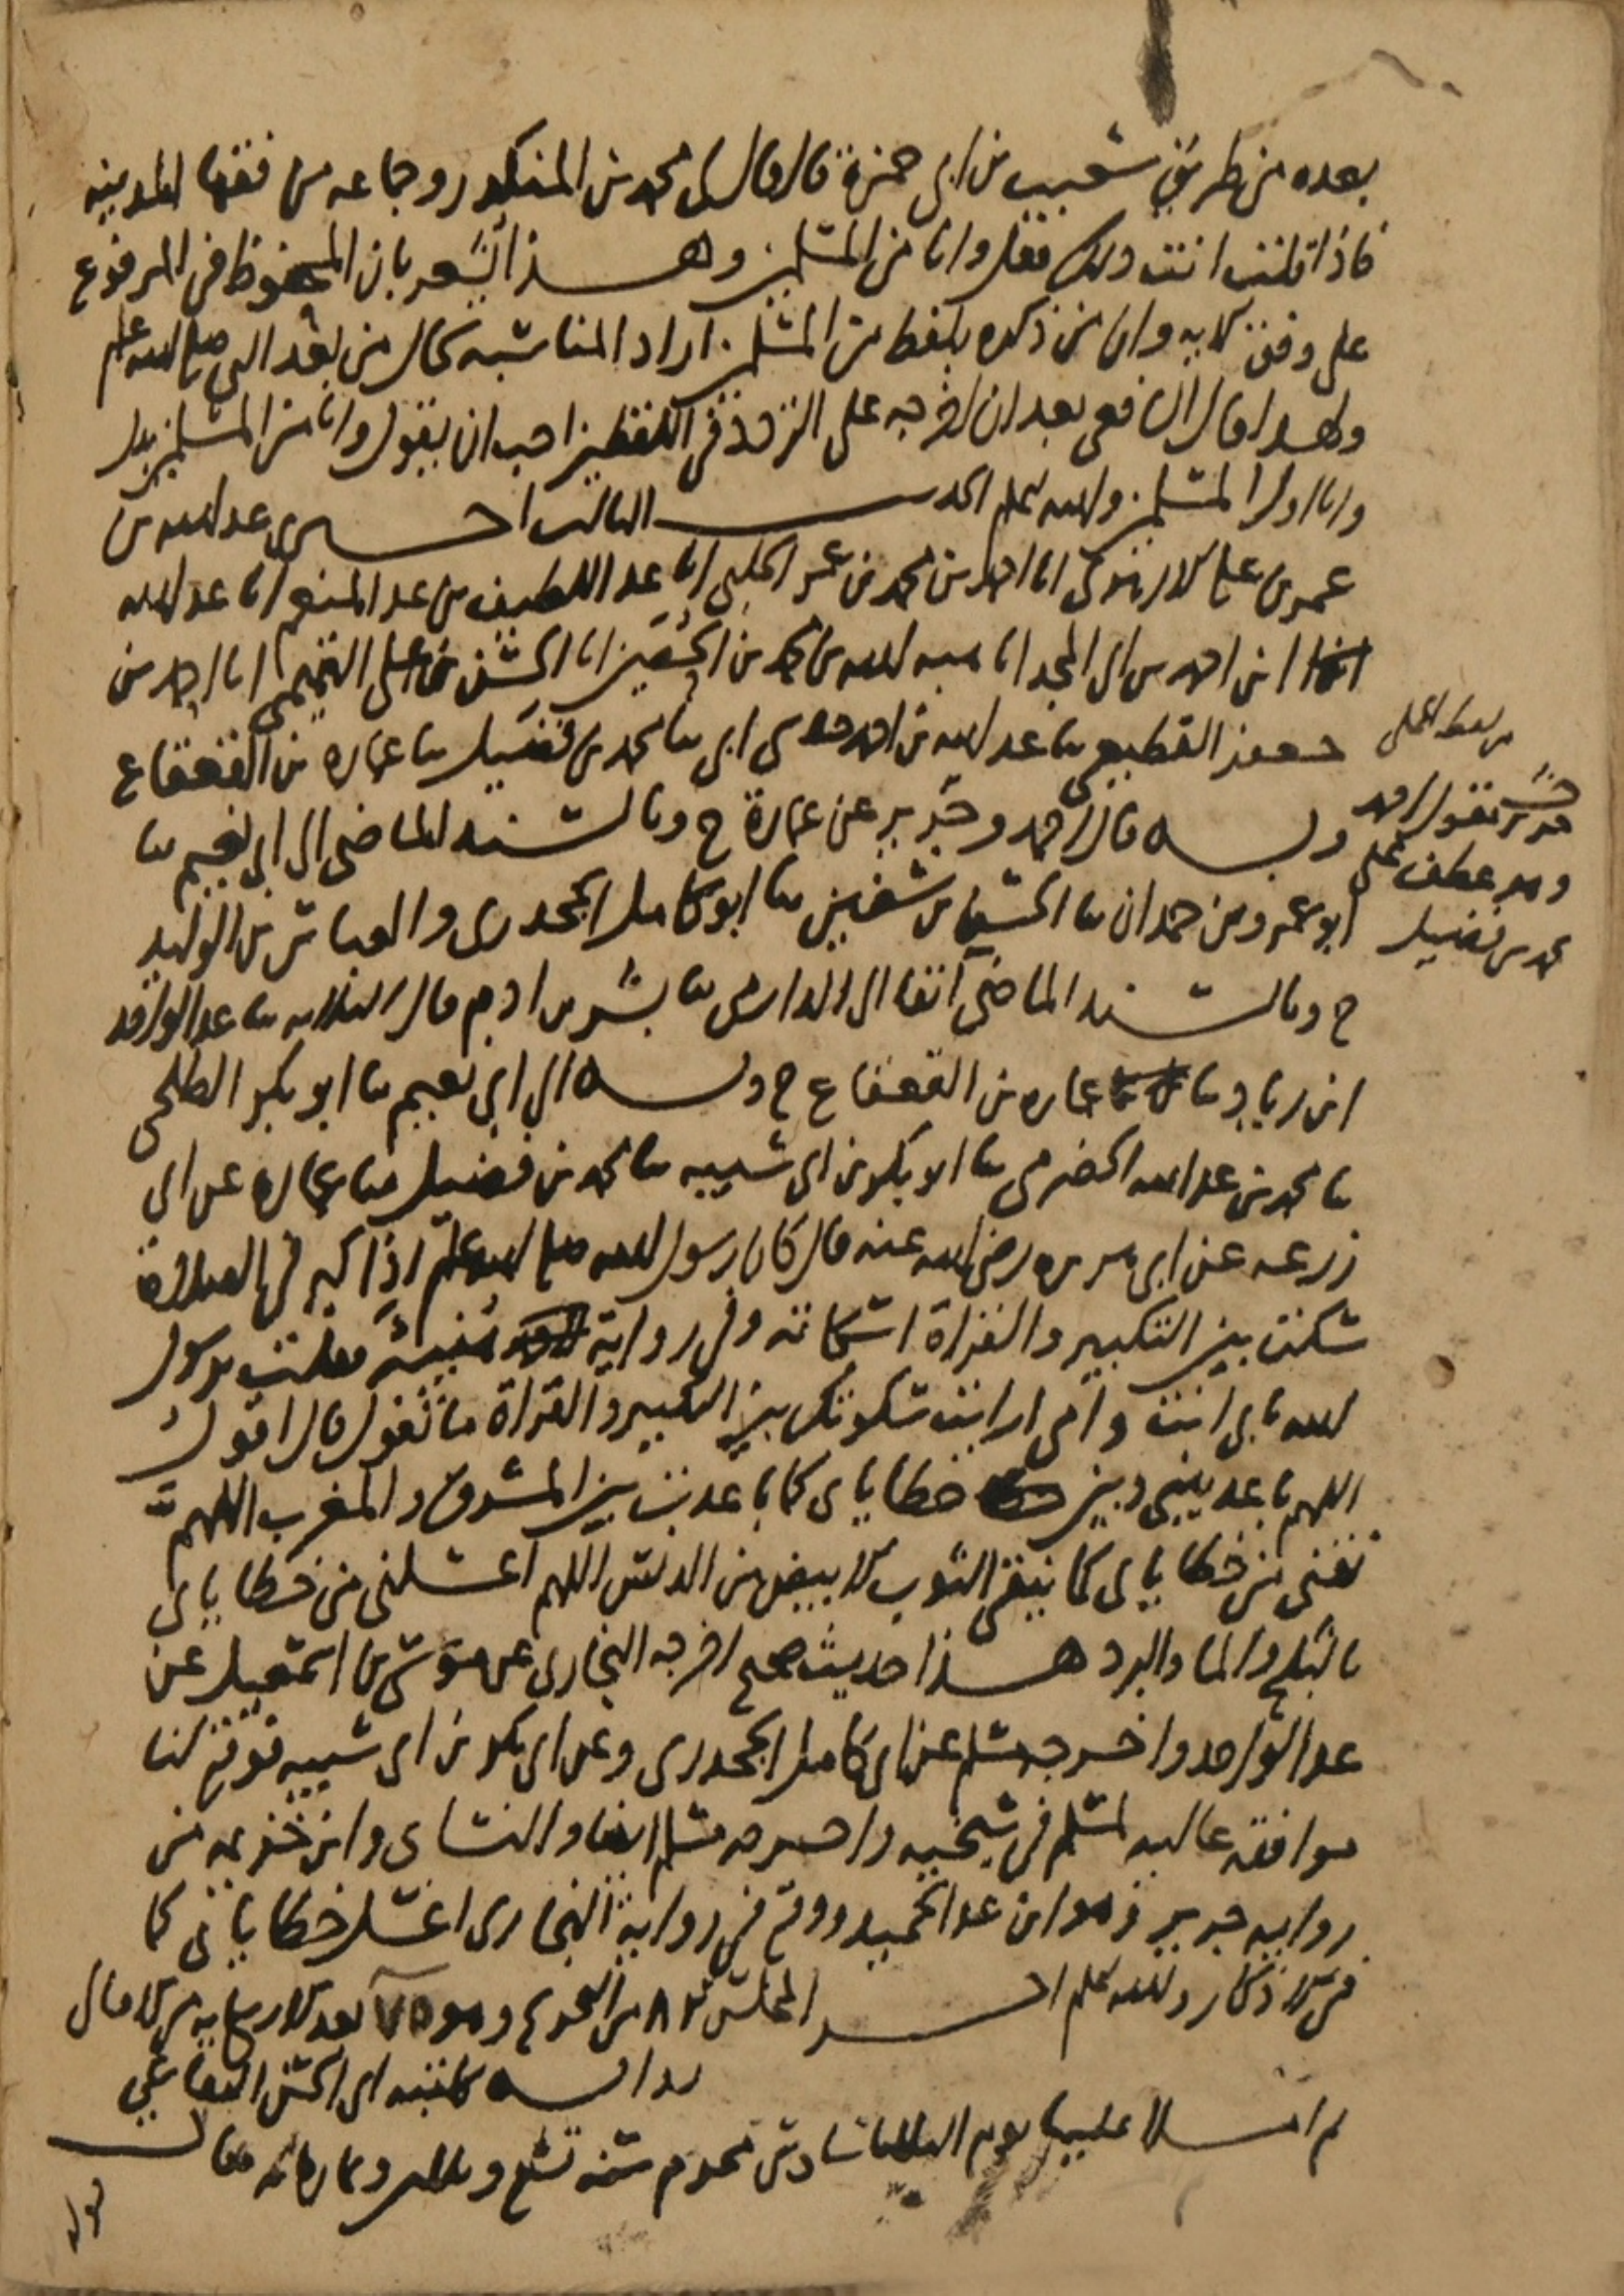 بعده من طريق شعيب بن ابي حمزة قال قال لي محمد بن المنكدر وجماعه من فقها المدينه
فاذا قلت انت ذلك فقل وانا من المسلمين وهذا يشعر بان المحفوظ في المرفوع
على وفق الايه وان من ذكره بلفظ من المسلمين اراد المناسبه لحال من بعد النبي صلى الله عليه وسلم
ولهذا قال الشافعي بعد ان اخرجه على التردد في اللفظين احب ان يقول وانا من المسلمين بدل
وانا اول المسلمين والله اعلم الحديث الثالث اخبرني عبد الله بن
عمر بن علي الازهري انا احمد بن محمد بن عمر الحلبي انا عبد اللطيف بن عبد المنعم انا عبد الله
ابن احمد بن ابي المجد انا هبه الله بن محمد بن الحصين انا الحسن بن علي التميمي انا احمد بن
جعفر القطيعي ثنا عبد الله بن احمد حدثني ابي ثنا محمد بن فضيل ثنا عماره بن القعقاع
وبه قال احمد وجرير عن عمارة ح وبالسند الماضي الى ابي نعيم ثنا
ابو عمرو بن حمدان ثنا الحسن بن سفين ثنا ابو كامل الجحدري والعباس بن الوليد
ح وبالسند الماضي آنفا الى الدارمي ثنا بشر بن ادم قال الثلاثه ثنا عبد الواحد
ابن زياد ثنا عماره بن القعقاع ح وبه الى ابي نعيم ثنا ابو بكر الطلحي
ثنا محمد بن عبد الله الحضرمي ثنا ابو بكر بن ابي شيبه ثنا محمد بن فضيل ثنا عماره عن ابي
زرعه عن ابي هريره رضي الله عنه قال كان رسول الله صلى الله عليه وسلم اذا كبر في الصلاة
سكت بين التكبير والقراة اسكاته وفي رواية هنية فقلت يرسول
الله بابي انت وامي ارايت سكوتك بين التكبير والقراة ما تقول قال اقول
اللهم باعد بيني وبين خطاياي كما باعدت بين المشرق والمغرب اللهم
نقني من خطاياي كما ينقى الثوب الابيض من الدنس اللهم اغسلني من خطاياي
بالثلج والما والبرد هذا حديث صحيح اخرجه البخاري عن موسى بن اسمعيل عن
عبد الواحد واخرجه مسلم عن ابي كامل الجحدري وعن ابي بكر بن ابي شيبه فوقع لنا
موافقه عاليه لمسلم في شيخيه واخرجه مسلم ايضا والنساي وابن خزيمه من
روايه جرير وهو ابن عبد الحميد ووقع في رواية البخاري اغسل خطاياي كما
في الاذكار والله اعلم اخر المجلس من التخريج وهو بعد الاربعمايه من الامالي
روايه كاتبه ابي الحسن البقاعي
ثم املا علينا يوم الثلاثا سادس محرم سنه تسع وثلثين وثمانمائه فقال
من لفظ المملي
جرير يقول احمد
وهو عطف على
محمد بن فضيل
قوله